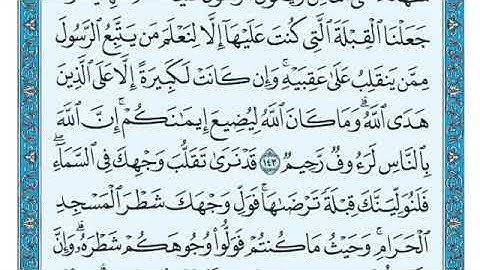 جَعَلْنَا ٱلْقِبْلَةَ ٱلَّتِى كُنتَ عَلَيْهَآ إِلَّا لِنَعْلَمَ مَن يَتَّبِعُ ٱلرَّسُولَ
مِمَّن يَنقَلِبُ عَلَىٰ عَقِبَيْهِ ۚ وَإِن كَانَتْ لَكَبِيرَةً إِلَّا عَلَى ٱلَّذِينَ
هَدَى ٱللَّهُ ۗ وَمَا كَانَ ٱللَّهُ لِيُضِيعَ إِيمَـٰنَكُمْ ۚ إِنَّ ٱللَّهَ
بِٱلنَّاسِ لَرَءُوفٌ رَّحِيمٌ ١٤٣ قَدْ نَرَىٰ تَقَلُّبَ وَجْهِكَ فِى ٱلسَّمَآءِ ۖ
فَلَنُوَلِّيَنَّكَ قِبْلَةً تَرْضَىٰهَا ۚ فَوَلِّ وَجْهَكَ شَطْرَ ٱلْمَسْجِدِ
ٱلْحَرَامِ ۚ وَحَيْثُ مَا كُنتُمْ فَوَلُّوا۟ وُجُوهَكُمْ شَطْرَهُۥ ۗ وَإِنَّ